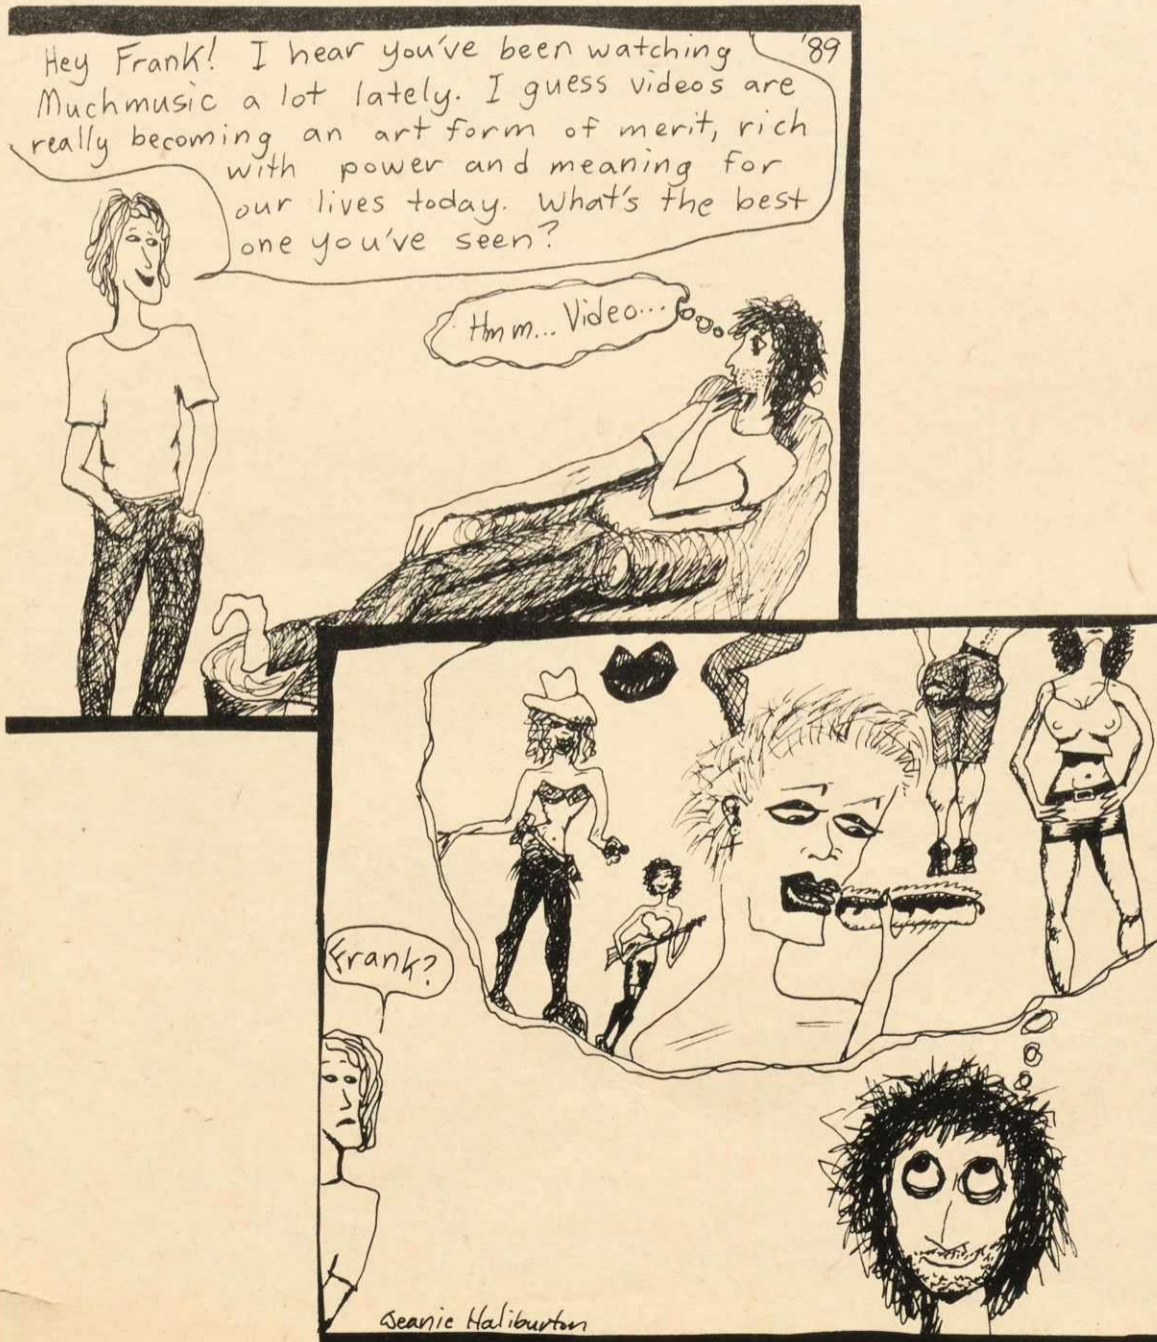 Hey Frank! I hear you've been watching
'89
Muchmusic a lot lately. I guess videos are
really becoming an art form of merit, rich
with power and meaning for
our lives today. What's the best
one you've seen?
Hmm... Video...
Frank?
Jeanie Haliburton